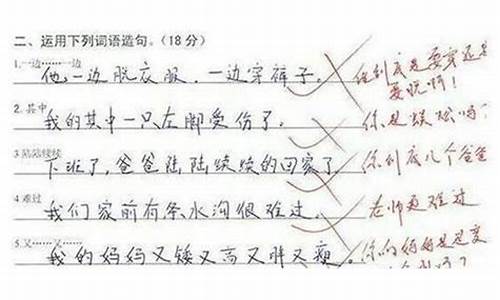 二、运用下列词语造句。(18 分)
1.一边……一边
他一边脱衣服,一边穿裤子。
你到底是要穿还是
要脱啊!
2.其中
我的其中一只左脚受伤了。
你是蜈蚣吗?
3.陆陆续续
下班了,爸爸陆陆续续的回家了。
你到底几个爸爸
4.难过
我们家前有条水沟很难过。
老师更难过
5.又……又……
我的妈妈又矮又高又胖又瘦。
你的妈妈是变